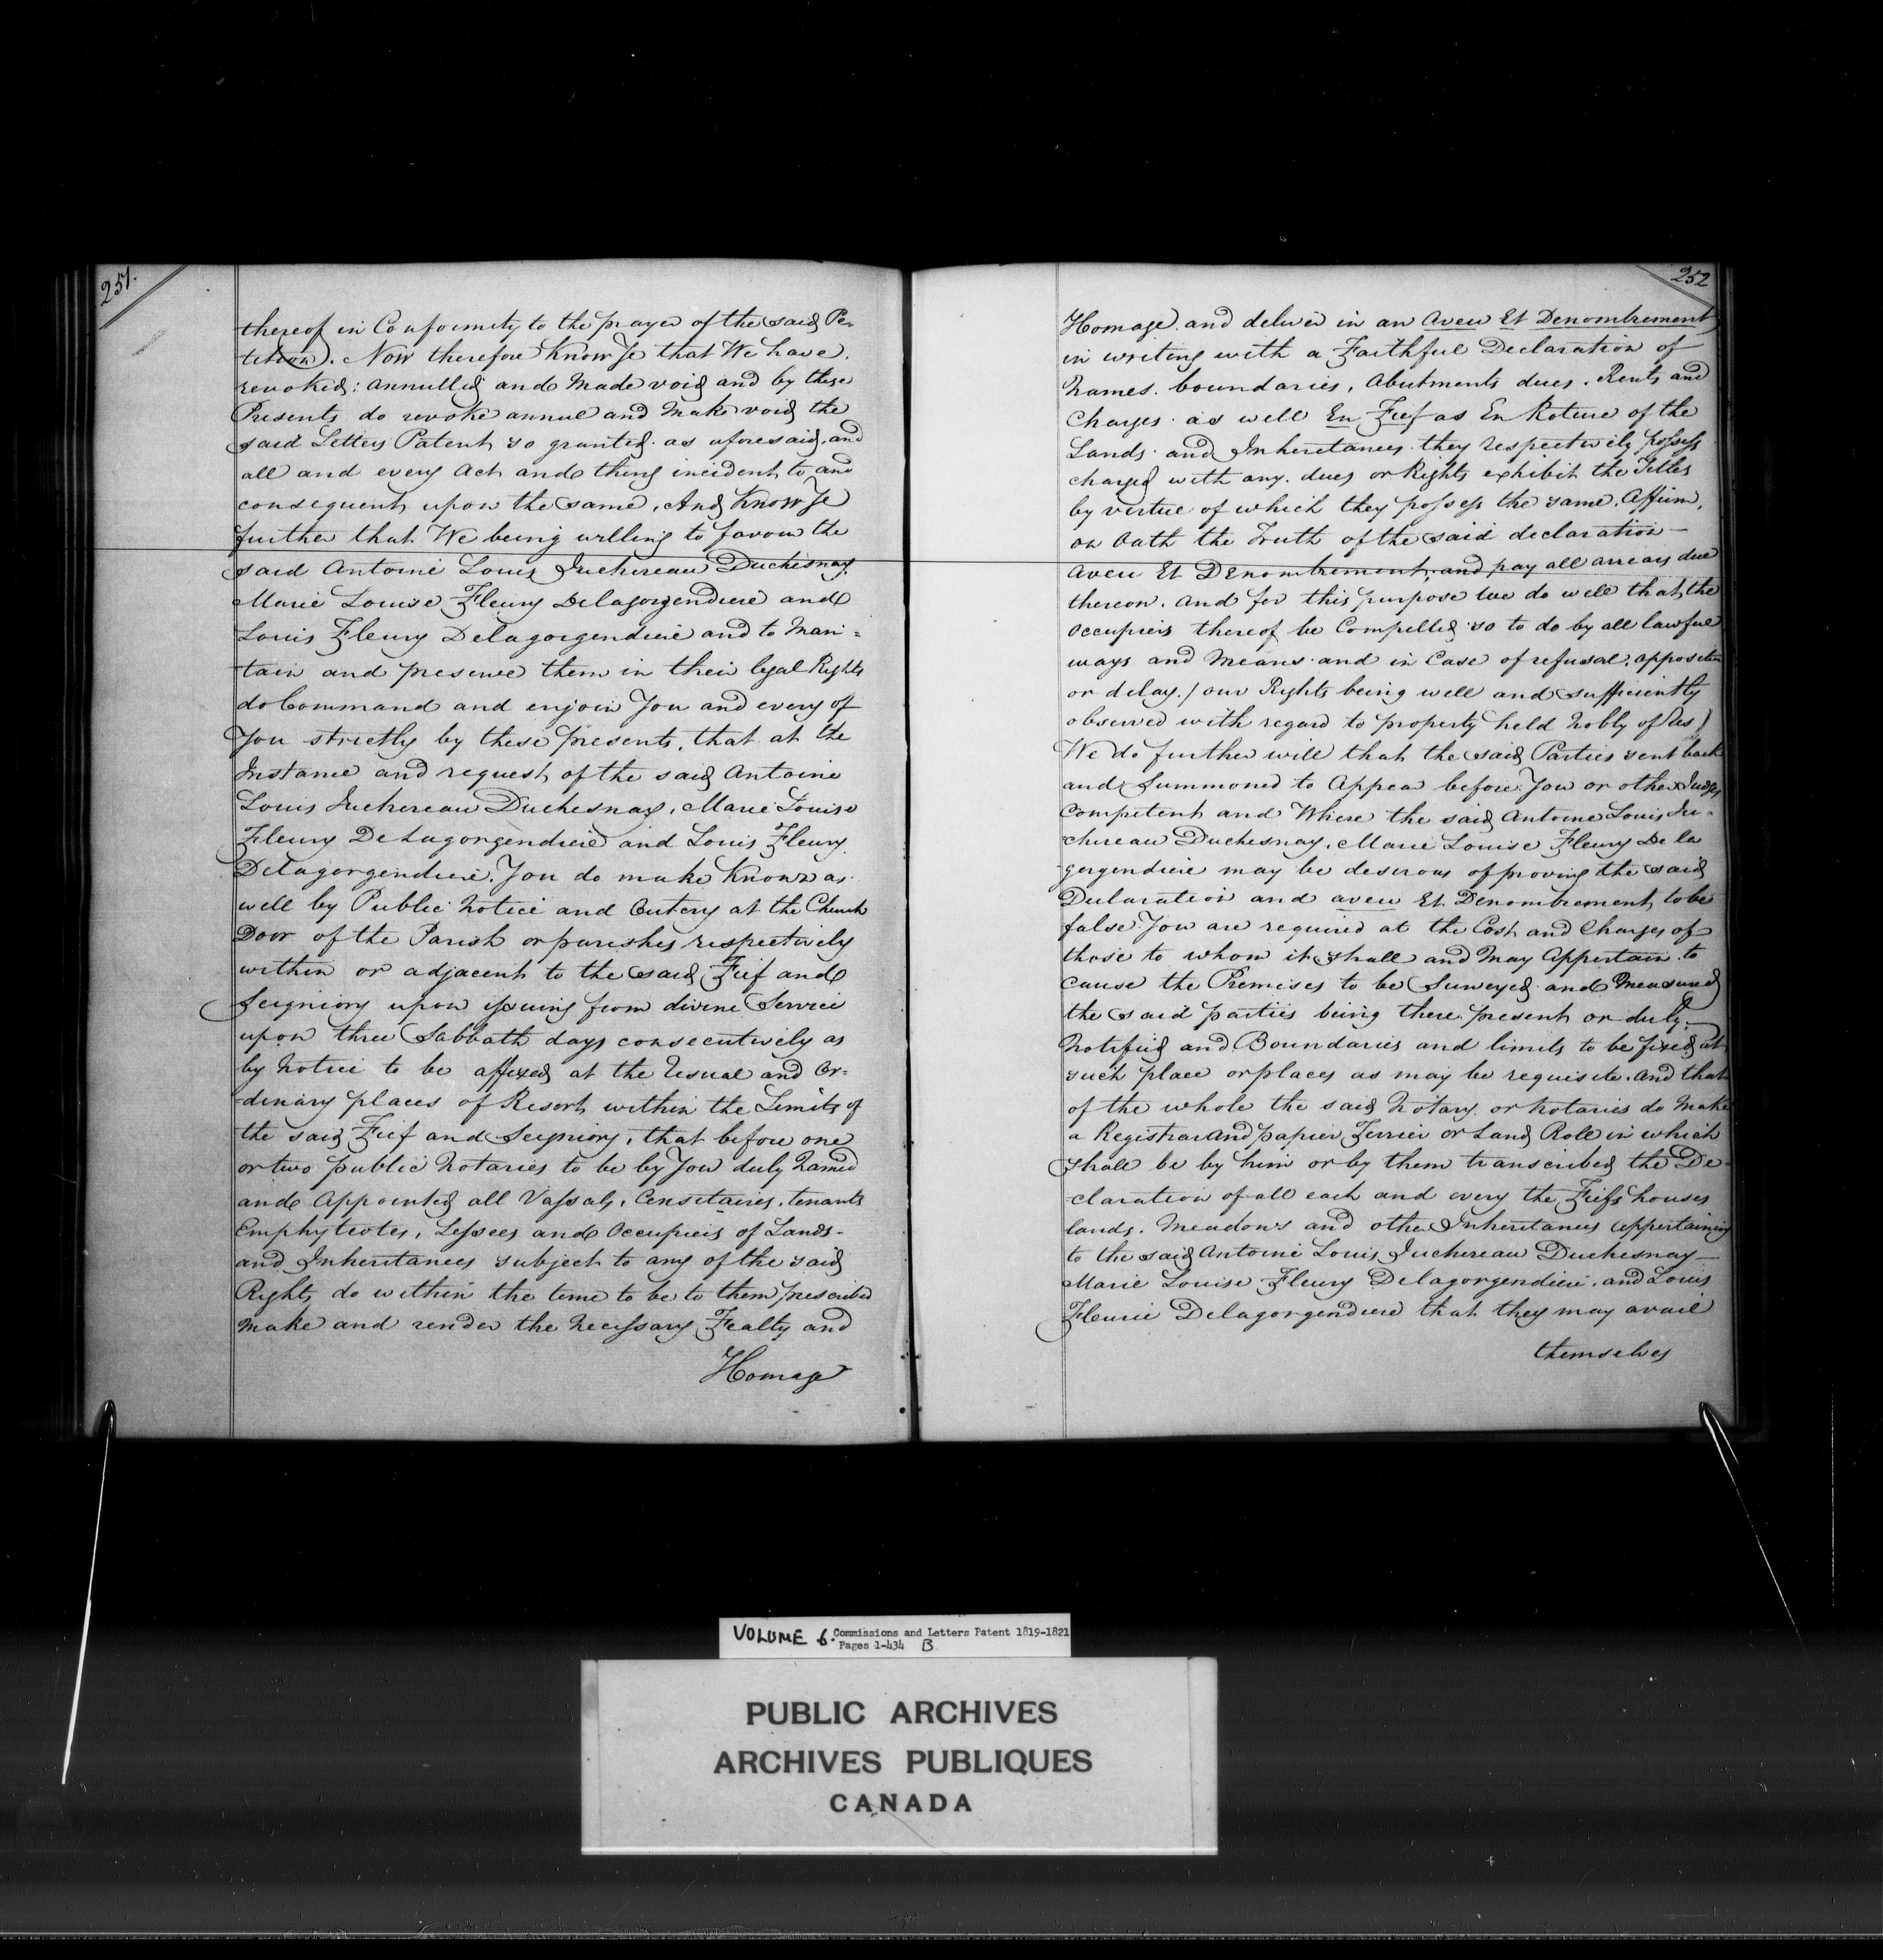 251.
thereof in Conformity to the prayer of the said Pe-
tition. Now therefore Know Ye that We have.
revoked: annulled and Made void and by these
Presents do revoke annul and Make void the
said Letters Patent so granted as aforesaid, and
all and every Act and thing incident to and
consequent upon the same, And Know Ye
further that We being willing to favour the
said Antoine Louis Juchereau Duchesnay
Marie Louise Fleury Delagorgendiere and
Louis Fleury Delagorgendiere and to Main=
tain and preserve them in their legal Rights
do Command and enjoin You and every of
You strictly by these presents, that at the
Instance and request of the said Antoine
Louis Juchereau Duchesnay, Marie Louise
Fleury De Lagorgendiere and Louis Fleury
Delagorgendiere. You do make Known as
well by Public Notice and Outcry at the Church
Door of the Parish or parishes respectively
within or adjacent to the said Fief and
Seigniory upon issuing from divine Service
upon three Sabbath days consecutively as
by Notice to be affixed at the Usual and Or=
=dinary places of Resort within the Limits of
the said Fief and Seigniory, that before one
or two public Notaries to be by You duly Named
and Appointed all Vassals, Censitaires, tenants
Emphyteotes, Lessees and Occupiers of Lands-
and Inheritances subject to any of the said
Rights do within the time to be to them prescribed
Make and render the Necessary Fealty and
Homage
252
Homage and deliver in an Aveu Et Denombrement
in writing with a Faithful Declaration of
Names. boundaries, Abutments dues. Rents and
Charges as well En Fief as En Roture of the
Lands and Inheritances they respectively possess
charged with any dues or Rights exhibit the Titles
by virtue of which they possess the same. Affirm,
on Oath the Truth of the said declaration—
Aveu Et Denombrement, and pay all arrears due
thereon. And for this purpose We do will that the
occupiers thereof be Compelled so to do by all lawful
ways and Means and in Case of refusal, opposition
or delay. / our Rights being well and sufficiently
observed with regard to property held Nobly of Us)
We do further will that the said Parties sent back
and Summoned to Appear before You or other Judges
Competent and Where the said Antoine Louis Ju-
chereau Duchesnay, Marie Louise Fleury De la
gorgendiere may be desirous of proving the said
Declaration and aveu Et Denombrement to be
false. You are required at the Cost and Charges of
those to whom it shall and May Appertain to
Cause the Premises to be Surveyed and Measured
the said parties being there present or duly
Notified and Boundaries and limits to be fixed at
such place or places as may be requisite. And that
of the whole the said Notary or Notaries do Make
a Registrar and papier Terrier or Land Role in which
shall be by him or by them transcribed the De-
claration of all each and every the Fiefs houses
lands. Meadows and other Inheritances Appertaining
to the said Antoine Louis Juchereau Duchesnay—
Marie Louise Fleury Delagorgendiere, and Louis
Fleurie Delagorgendiere that they may avail
themselves
VOLUME 6. Commissions and Letters Patent 1819-1821
Pages 1-434 B
PUBLIC ARCHIVES
ARCHIVES PUBLIQUES
CANADA